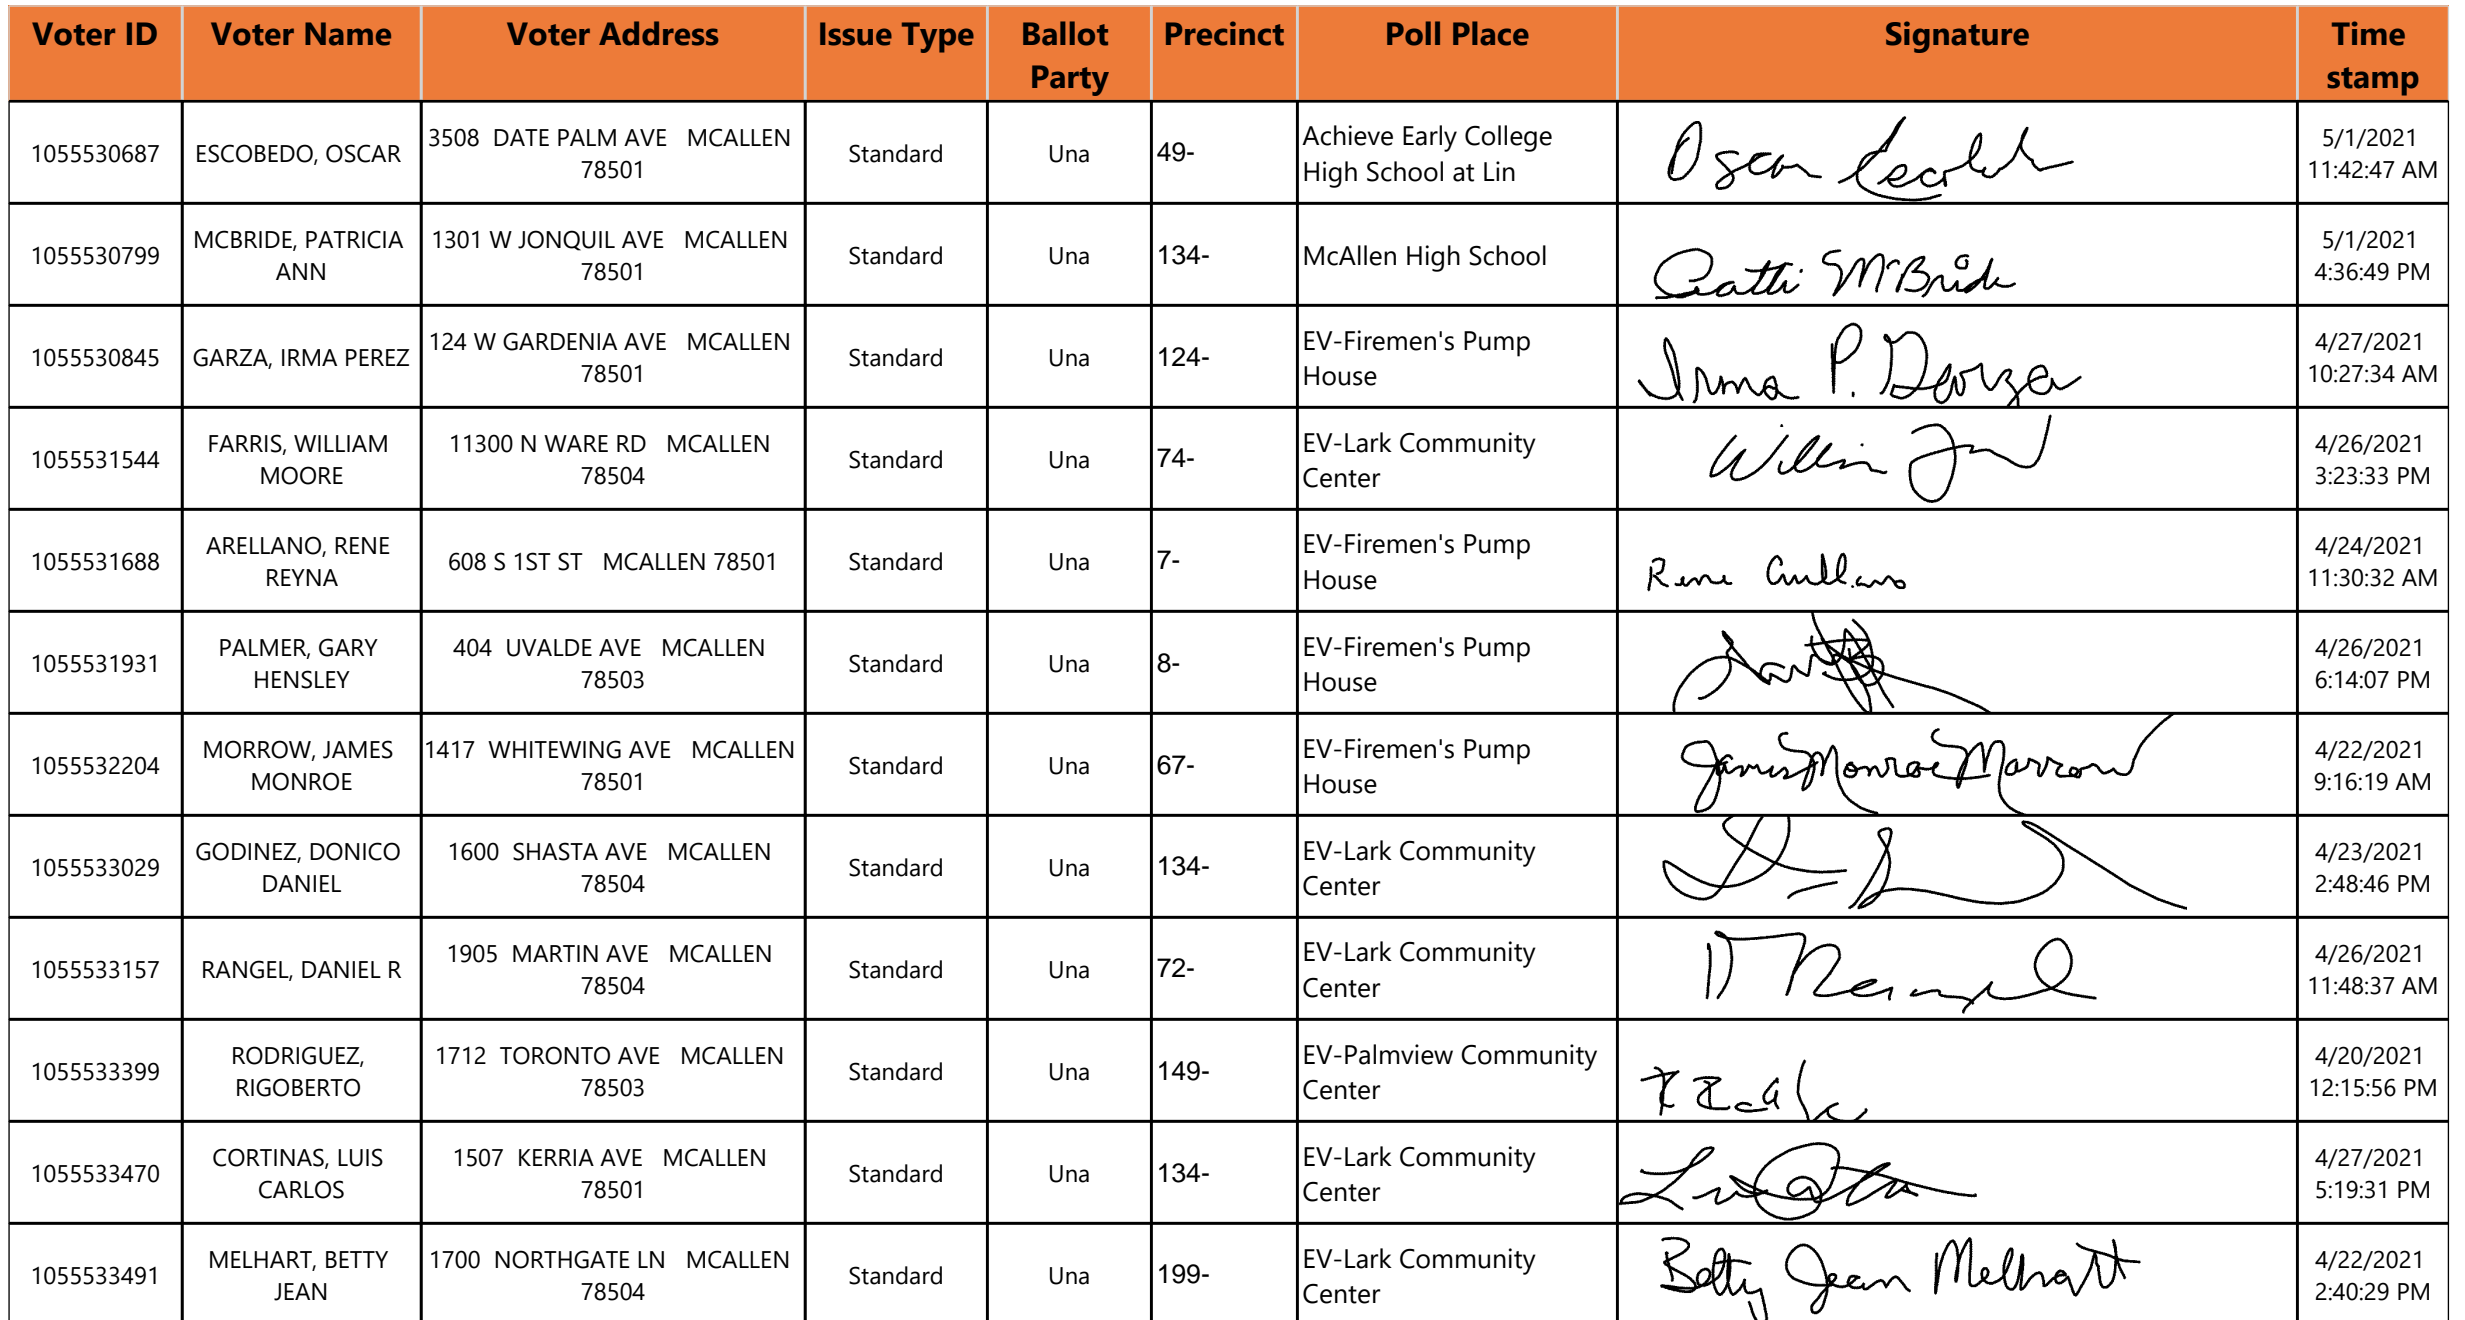 Voter ID Voter Name Voter Address Issue Type Ballot Party Precinct Poll Place Signature Time stamp
1055530687 ESCOBEDO, OSCAR 3508 DATE PALM AVE MCALLEN 78501 Standard Una 49- Achieve Early College High School at Lin Oscar 5/1/2021 11:42:47 AM
1055530799 MCBRIDE, PATRICIA ANN 1301 W JONQUIL AVE MCALLEN 78501 Standard Una 134- McAllen High School Patti McBride 5/1/2021 4:36:49 PM
1055530845 GARZA, IRMA PEREZ 124 W GARDENIA AVE MCALLEN 78501 Standard Una 124- EV-Firemen's Pump House Irma P. Garza 4/27/2021 10:27:34 AM
1055531544 FARRIS, WILLIAM MOORE 11300 N WARE RD MCALLEN 78504 Standard Una 74- EV-Lark Community Center 4/26/2021 3:23:33 PM
1055531688 ARELLANO, RENE REYNA 608 S 1ST ST MCALLEN 78501 Standard Una 7- EV-Firemen's Pump House Rene Arellano 4/24/2021 11:30:32 AM
1055531931 PALMER, GARY HENSLEY 404 UVALDE AVE MCALLEN 78503 Standard Una 8- EV-Firemen's Pump House 4/26/2021 6:14:07 PM
1055532204 MORROW, JAMES MONROE 1417 WHITEWING AVE MCALLEN 78501 Standard Una 67- EV-Firemen's Pump House James Monroe Morrow 4/22/2021 9:16:19 AM
1055533029 GODINEZ, DONICO DANIEL 1600 SHASTA AVE MCALLEN 78504 Standard Una 134- EV-Lark Community Center 4/23/2021 2:48:46 PM
1055533157 RANGEL, DANIEL R 1905 MARTIN AVE MCALLEN 78504 Standard Una 72- EV-Lark Community Center 4/26/2021 11:48:37 AM
1055533399 RODRIGUEZ, RIGOBERTO 1712 TORONTO AVE MCALLEN 78503 Standard Una 149- EV-Palmview Community Center 4/20/2021 12:15:56 PM
1055533470 CORTINAS, LUIS CARLOS 1507 KERRIA AVE MCALLEN 78501 Standard Una 134- EV-Lark Community Center 4/27/2021 5:19:31 PM
1055533491 MELHART, BETTY JEAN 1700 NORTHGATE LN MCALLEN 78504 Standard Una 199- EV-Lark Community Center Betty Jean Melhart 4/22/2021 2:40:29 PM